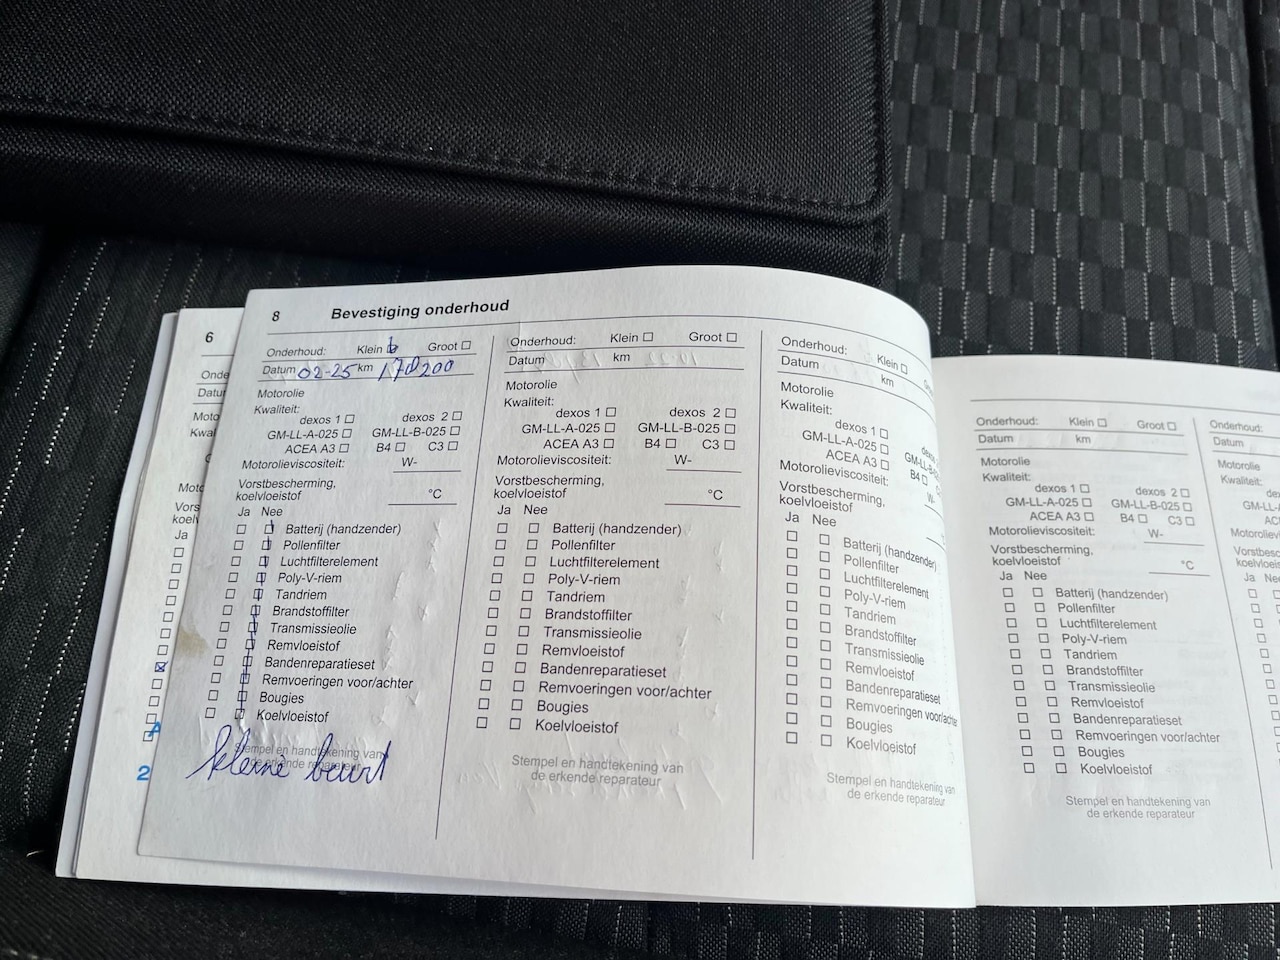 6
Onde
Datu
Moto
Kwal
Moto
Vors
koelv
Ja
2
8 Bevestiging onderhoud
Onderhoud: Klein Groot
Datum 02-25 km
Motorolie
Kwaliteit:
dexos 1 dexos 2
GM-LL-A-025 GM-LL-B-025
ACEA A3 B4 C3
Motorolieviscositeit: W-
Vorstbescherming,
koelvloeistof °C
Ja Nee
Batterij (handzender)
Pollenfilter
Luchtfilterelement
Poly-V-riem
Tandriem
Brandstoffilter
Transmissieolie
Remvloeistof
Bandenreparatieset
Remvoeringen voor/achter
Bougies
Koelvloeistof
Stempel en handtekening van
de erkende reparateur
kleine beurt
Onderhoud: Klein Groot
Datum km
Motorolie
Kwaliteit:
dexos 1 dexos 2
GM-LL-A-025 GM-LL-B-025
ACEA A3 B4 C3
Motorolieviscositeit: W-
Vorstbescherming,
koelvloeistof °C
Ja Nee
Batterij (handzender)
Pollenfilter
Luchtfilterelement
Poly-V-riem
Tandriem
Brandstoffilter
Transmissieolie
Remvloeistof
Bandenreparatieset
Remvoeringen voor/achter
Bougies
Koelvloeistof
Stempel en handtekening van
de erkende reparateur
Onderhoud: Klein
Datum km
Motorolie
Kwaliteit:
dexos 1 dexos
GM-LL-A-025 GM-LL-B
ACEA A3 B4
Motorolieviscositeit: W-
Vorstbescherming,
koelvloeistof
Ja Nee
Batterij (handzender)
Pollenfilter
Luchtfilterelement
Poly-V-riem
Tandriem
Brandstoffilter
Transmissieolie
Remvloeistof
Bandenreparatieset
Remvoeringen voor/achte
Bougies
Koelvloeistof
Stempel en handtekening van
de erkende reparateur
Onderhoud: Klein Groot
Datum km
Motorolie
Kwaliteit:
dexos 1 dexos 2
GM-LL-A-025 GM-LL-B-025
ACEA A3 B4 C3
Motorolieviscositeit: W-
Vorstbescherming,
koelvloeistof °C
Ja Nee
Batterij (handzender)
Pollenfilter
Luchtfilterelement
Poly-V-riem
Tandriem
Brandstoffilter
Transmissieolie
Remvloeistof
Bandenreparatieset
Remvoeringen voor/achter
Bougies
Koelvloeistof
Stempel en handtekening van
de erkende reparateur
Onderhoud:
Datum
Motorolie
Kwaliteit:
de
GM-LL-A
ACE
Motorolievi
Vorstbesc
koelvloeis
Ja Ne